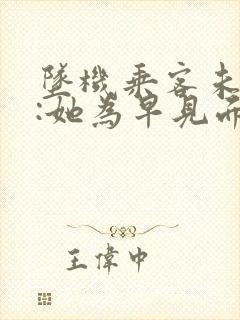 墜機乘客未
:她為早見而
王偉中